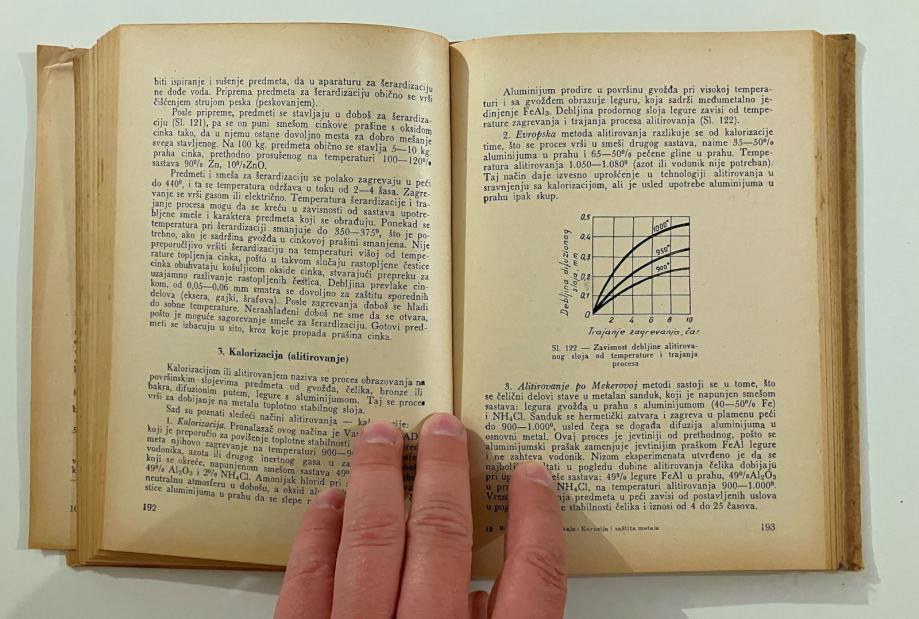 biti ispiranje i sušenje predmeta, da u aparaturu za šerardizaciju
ne dođe voda. Priprema predmeta za šerardizaciju obično se vrši
čišćenjem strujom peska (peskovanjem).
Posle pripreme, predmeti se stavljaju u doboš za šerardiza-
ciju (Sl. 121), pa se on puni smešom cinkove prašine s oksidom
cinka tako, da u njemu ostane dovoljno mesta za dobro mešanje
svega stavljenog. Na 100 kg. predmeta obično se stavlja 5—10 kg.
praha cinka, prethodno prosušenog na temperaturi 100—120⁰
sastava 90% Zn, 10% ZnO.
Predmeti i smeša za šerardizaciju se polako zagrevaju u peći
do 440⁰, i ta se temperatura održava u toku od 2—4 šasa. Zagre-
vanje se vrši gasom ili električno. Temperatura šerardizacije i tra-
janje procesa mogu da se kreću u zavisnosti od sastava upotre-
bljene smeše i karaktera predmeta koji se obrađuju. Ponekad se
temperatura pri šerardizaciji smanjuje do 350—375⁰, što je po-
trebno, ako je sadržina gvožđa u cinkovoj prašini smanjena. Nije
preporučljivo vršiti šerardizaciju na temperaturi višoj od tempe-
rature topljenja cinka, pošto u takvom slučaju rastopljene čestice
cinka obuhvataju košuljicom okside cinka, stvarajući prepreku za
uzajamno razlivanje rastopljenih čestica. Debljina prevlake cin-
kom, od 0,05—0,06 mm smatra se dovoljno za zaštitu sporednih
delova (eksera, gajki, šrafova). Posle zagrevanja doboš se hladi
do sobne temperature. Nerashlađeni doboš ne sme da se otvara,
pošto je moguće sagorevanje smeše za šerardizaciju. Gotovi pred-
meti se izbacuju u sito, kroz koje propada prašina cinka.
3. Kalorizacija (alitirovanje)
Kalorizacijom ili alitirovanjem naziva se proces obrazovanja na
površinskim slojevima predmeta od gvožđa, čelika, bronze ili
bakra, difuzionim putem, legure s aluminijumom. Taj se proces
vrši za dobijanje na metalu toplotno stabilnog sloja.
Sad su poznati sledeći načini alitirovanja —
1. Kalorizacija. Pronalazač ovog načina je
koji je preporučio za povišenje toplotne stabilnosti
meta njihovo zagrevanje na temperaturi
vodonika, azota ili drugog inertnog gasa u
koji se okreće, napunjenom smešom sastava
49% Al₂O₃ i 2% NH₄Cl. Amonijak hlorid pri
neutralnu atmosferu u dobošu, a oksid
stice aluminijuma u prahu da se slepe
192
Aluminijum prodire u površinu gvožđa pri visokoj tempera-
turi i sa gvožđem obrazuje leguru, koja sadrži međumetalno je-
dinjenje FeAl₃. Debljina prodornog sloja legure zavisi od tempe-
rature zagrevanja i trajanja procesa alitirovanja (Sl. 122).
2. Evropska metoda alitirovanja razlikuje se od kalorizacije
time, što se proces vrši u smeši drugog sastava, naime 35—50%
aluminijuma u prahu i 65—50% pečene gline u prahu. Tempe-
ratura alitirovanja 1.050—1.080⁰ (azot ili vodonik nije potreban).
Taj način daje izvesno uprošćenje u tehnologiji alitirovanja u
sravnjenju sa kalorizacijom, ali je usled upotrebe aluminijuma u
prahu ipak skup.
Debljina difuzionog
sloja, mm
0,5
0,4
0,3
0,2
0,1
0
1000°
950°
900°
2 4 6 8 10
Trajanje zagrevanja, čas
Sl. 122 — Zavisnost debljine alitirova-
nog sloja od temperature i trajanja
procesa
3. Alitirovanje po Mekerovoj metodi sastoji se u tome, što
se čelični delovi stave u metalan sanduk, koji je napunjen smešom
sastava: legura gvožđa u prahu s aluminijumom (40—50% Fe)
i NH₄Cl. Sanduk se hermetički zatvara i zagreva u plamenu peći
do 900—1.000⁰, usled čega se događa difuzija aluminijuma u
osnovni metal. Ovaj proces je jevtiniji od prethodnog, pošto se
aluminijumski prašak zamenjuje jevtinijim praškom FeAl legure
i ne zahteva vodonik. Nizom eksperimenata utvrđeno je da se
u pogledu dubine alitirovanja čelika dobijaju
sastava: 49% legure FeAl u prahu, 49% Al₂O₃
NH₄Cl, na temperaturi alitirovanja 900—1.000⁰.
predmeta u peći zavisi od postavljenih uslova
stabilnosti čelika i iznosi od 4 do 25 časova.
13
Korozija i zaštita metala
193